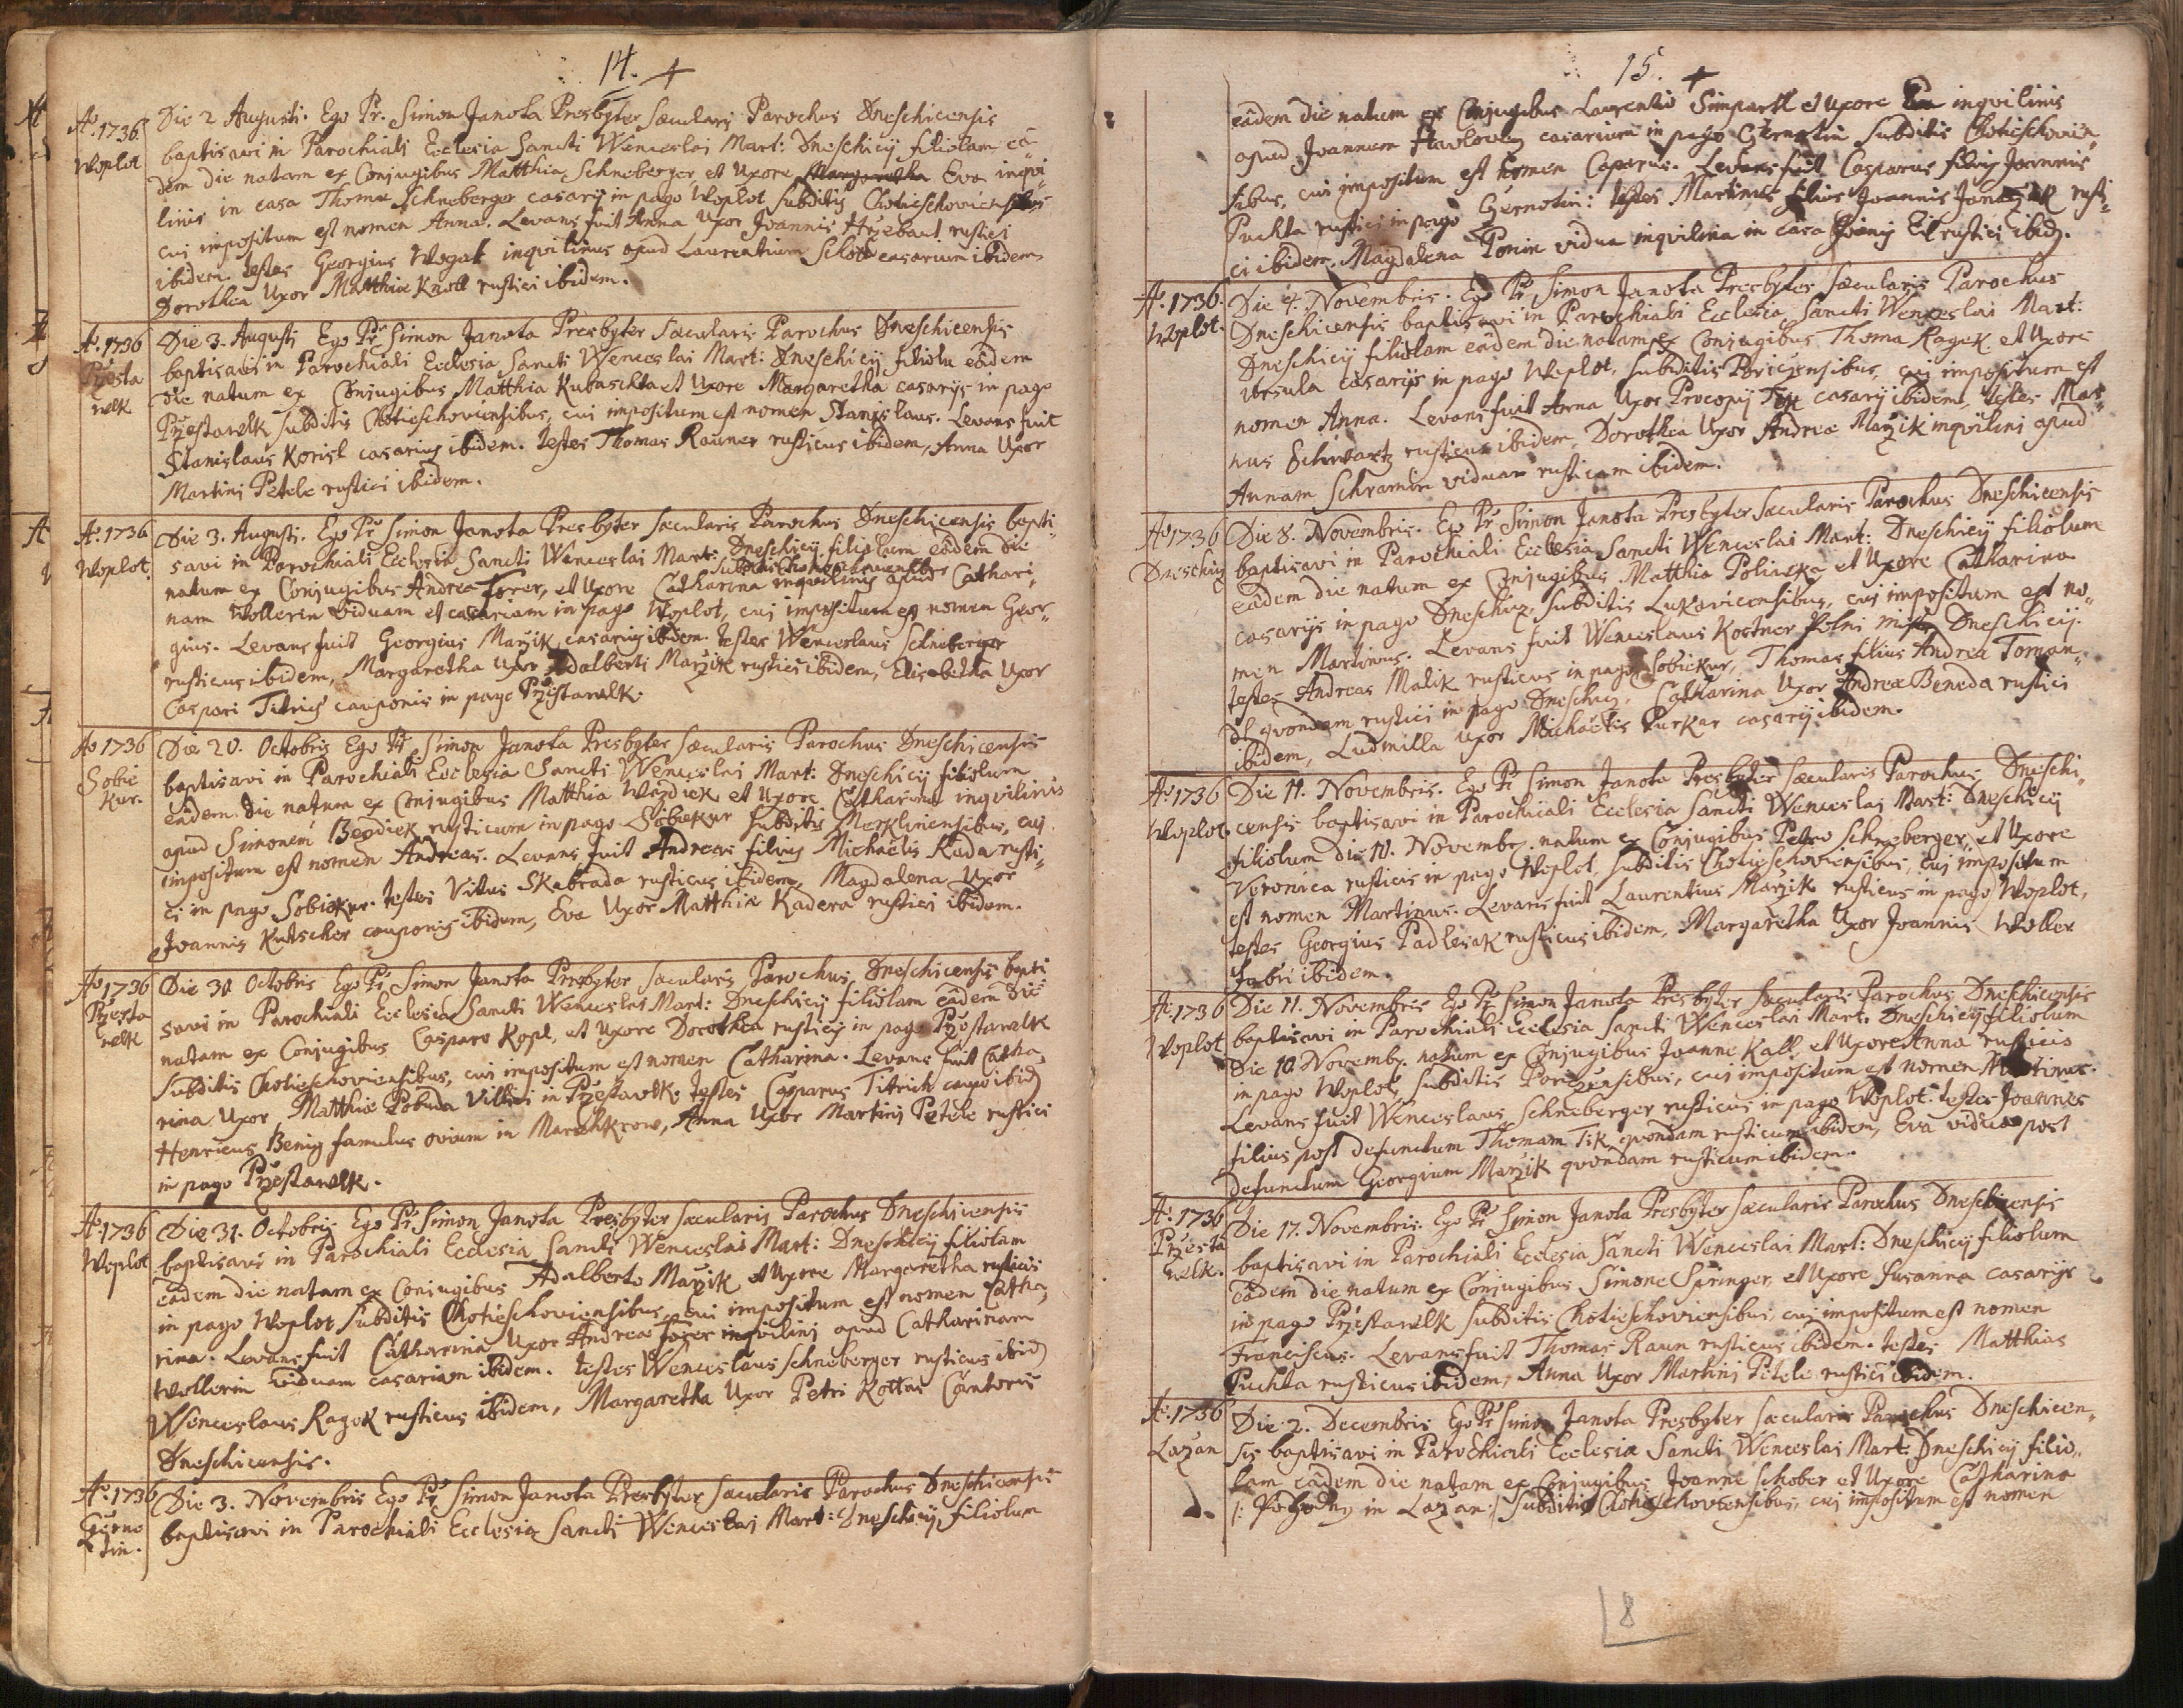 14.
Ao. 1736. Die 2 Augusti. Ego Pr. Simon Janota Presbyter Sæcularis Parochus Dneschicensis
Woplot baptisavi in Parochiali Ecclesia Sancti Wenceslai Mart: Dneschicÿ filiolam eâ-
dem die natam ex Conjugibus Matthia Schneberger et Uxore Margaretha Eva inqvi-
linis in casa Thomæ Schneberger casarÿ in pago Woplot subditis Chotieschoviensibus
cui impositum est nomen Anna. Levans fuit Anna Uxor Joannis Hrzebant rustici
ibidem. Testes Georgius Wogat inqvilinus apud Laurentium casarium ibidem
Dorothea Uxor Matthiæ Knoll rustici ibidem.
Ao. 1736 Die 3. Augusti Ego Pr. Simon Janota Presbyter Sæcularis Parochus Dneschicensis
Przesta baptisavi in Parochiali Ecclesia Sancti Wenceslai Mart: Dneschicÿ filiolu eâdem
welk die natum ex Conjugibus Matthia Kubaschka et Uxore Margaretha casarÿs in pago
Przestawlk subditis Chotieschoviensibus, cui impositum est nomen Stanislaus. Levans fuit
Stanislaus Korisl casarius ibidem. Testes Thomas Rauner rusticus ibidem, Anna Uxor
Martini Petele rustici ibidem.
Ao. 1736 Die 3. Augusti. Ego Pr Simon Janota Presbyter Sæcularis Parochus Dneschicensis bapti-
Woplot. savi in Parochiali Ecclesia Sancti Wenceslai Mart: Dneschicÿ filiolum eâdem die
subditis Chotieschoviensibus
natum ex Conjugibus Andrea Forer, et Uxore Catharina inqvilinis apud Cathari-
nam Wollerin viduam et casariam in pago Woplot, cui impositum est nomen Geor-
gius. Levans fuit Georgius Marzik casarius ibidem. Testes Wenceslaus Schneberger
rusticus ibidem, Margaretha Uxor Adalberti Marzik rustici ibidem, Elisabetha Uxor
Caspari Titrich cauponis in pago Przestawlk.
Ao 1736 Die 20. Octobris Ego Pr Simon Janota Presbyter Sæcularis Parochus Dneschicensis
Sobie baptisavi in Parochiali Ecclesia Sancti Wenceslai Mart: Dneschicÿ filiolum
kur. eâdem die natum ex Conjugibus Matthia Wazdick et Uxore Catharina inqvilinis
apud Simonem Bezdiek rusticum in pago Sobiekur subditis Merklinensibus, cui
impositum est nomen Andreas. Levans fuit Andreas filius Michaelis Kuda rusti-
ci in pago Sobiekur. Testes Vitus Skabrada rusticus ibidem, Magdalena Uxor
Joannis Kutscher cauponis ibidem, Eva Uxor Matthiæ Kadera rustici ibidem.
Ao 1736 Die 30 Octobris Ego Pr Simon Janota Presbyter Sæcularis Parochus Dneschicensis bapti
Przesta savi in Parochiali Ecclesia Sancti Wenceslai Mart: Dneschicÿ filiolam eâdem die
welk natam ex Conjugibus Casparo Kopl, et Uxore Dorothea rusticis in pago Przestawelk
subditis Chotieschoviensibus, cui impositum est nomen Catharina. Levans fuit Catha-
rina Uxor Matthiæ Pobuda Villici in Przestawlk. Testes Casparus Titrich caupo ibid
Henricus Benig famulus ovium in Marschkrow, Anna Uxor Martini Petele rustici
in pago Przestawlk.
Ao 1736 Die 31. Octobris Ego Pr Simon Janota Presbyter Sæcularis Parochus Dneschicensis
Woplot baptisavi in Parochiali Ecclesia Sancti Wenceslai Mart: Dneschicÿ filiolam
eâdem die natam ex Conjugibus Adalberto Marzik et Uxore Margaretha rusticis
in pago Woplot subditis Chotieschoviensibus, cui impositum est nomen Catha-
rina. Levans fuit Catharina Uxor Andreæ Forer inqvilini apud Catharinam
Wollerin viduam casariam ibidem. Testes Wenceslaus Schneberger rusticus ibid
Wenceslaus Ragek rusticus ibidem, Margaretha Uxor Petri Kottas Cantoris
Dneschicensis.
Ao. 1736 Die 3. Novembris Ego Pr Simon Janota Presbyter Sæcularis Parochus Dneschicensis
Czerno baptisavi in Parochiali Ecclesia Sancti Wenceslai Mart: Dneschicÿ filiolum
tin.
15.
eâdem die natum ex Conjugibus Laurentio Simpartl et Uxore Eva inqvilinis
apud Joannem casarium in pago Czernotin subditis Chotieschovien-
sibus, cui impositum est nomen Caparus. Levans fuit Casparus filius Joannis
Puchta rustici in pago Czernotin: Testes Martinus filius Joannis rusti-
ci ibidem, Magdalena Ponin vidua inqvilina in casa rustici ibid.
Ao. 1736. Die 4. Novembris. Ego Pr Simon Janota Presbyter Sæcularis Parochus
Woplot. Dneschicensis baptisavi in Parochiali Ecclesia Sancti Wenceslai Mart:
Dneschicÿ filiolam eâdem die natam ex Conjugibus Thoma Ragek et Uxore
Ursula casarÿs in pago Woplot, subditis Poriczensibus, cui impositum est
nomen Anna. Levans fuit Anna Uxor Procopÿ Tik casarÿ ibidem, Testes Mar-
nus Schwartz rusticus ibidem, Dorothea Uxor Andreæ Marzik inqvilini apud
Annam Schramin viduam rusticam ibidem.
Ao 1736 Die 8. Novembris. Ego Pr Simon Janota Presbyter Sæcularis Parochus Dneschicensis
Dneschicz baptisavi in Parochiali Ecclesia Sancti Wenceslai Mart: Dneschicÿ filiolum
eâdem die natum ex Conjugibus Matthia Polivka et Uxore Catharina
casarÿs in pago Dneschicz, subditis Lukavicensibus, cui impositum est no-
men Martinus. Levans fuit Wenceslaus Kostner Polni Dneschicÿ.
Testes Andreas Malik rusticus in pago Sobiekur, Thomas filius Andreæ Toman-
dl qvondam rustici in pago Dneschicz, Catharina Uxor Andreæ Beneda rustici
ibidem, Ludmilla Uxor Michaelis Purkar casarÿ ibidem.
Ao. 1736 Die 11. Novembris. Ego Pr Simon Janota Presbyter Sæcularis Parochus Dneschi-
Woplot. censis baptisavi in Parochiali Ecclesia Sancti Wenceslai Mart: Dneschicÿ
filiolum die 10. Novembr. natum ex Conjugibus Petro Schneberger, et Uxore
Veronica rusticis in pago Woplot, subditis Chotieschoviensibus, cui impositum
est nomen Martinus. Levans fuit Laurentius Marzik rusticus in pago Woplot,
Testes Georgius Padlesak rusticus ibidem, Margaretha Uxor Joannis Woller
Fabri ibidem.
Ao. 1736 Die 11. Novembris Ego Pr Simon Janota Presbyter Sæcularis Parochus Dneschicensis
Woplot baptisavi in Parochiali Ecclesia Sancti Wenceslai Mart. Dneschicÿ filiolum
Die 10 Novembr. natum ex Conjugibus Joanne Kall et Uxore Anna rusticis
in pago Woplot, subditis Poriczensibus, cui impositum est nomen Martinus.
Levans fuit Wenceslaus Schneberger rusticus in pago Woplot. Testes Joannes
filius post defunctum Thomam Tik qvondam rusticum ibidem, Eva vidua post
defunctum Georgium Marzik qvondam rusticum ibidem.
Ao. 1736 Die 17. Novembris. Ego Pr Simon Janota Presbyter Sæcularis Parochus Dneschicensis
Przesta baptisavi in Parochiali Ecclesia Sancti Wenceslai Mart: Dneschicÿ filiolum
welk. eâdem die natum ex Conjugibus Simone Springer, et Uxore Susanna casarÿs
in pago Przestawelk subditis Chotieschoviensibus, cui impositum est nomen
Franciscus. Levans fuit Thomas Raun rusticus ibidem. Testes Matthias
Puchta rusticus ibidem, Anna Uxor Martini Petele rustici ibidem.
Ao. 1736 Die 2. Decembris Ego Pr Simon Janota Presbyter Sæcularis Parochus Dneschicen-
Lazan sis baptisavi in Parochiali Ecclesia Sancti Wenceslai Mart. Dneschicÿ filio-
lam eâdem die natam ex Conjugibus Joanne Schober et Uxore Catharina
/: in Lazan :/ subditis Chotieschoviensibus, cui impositum est nomen
8